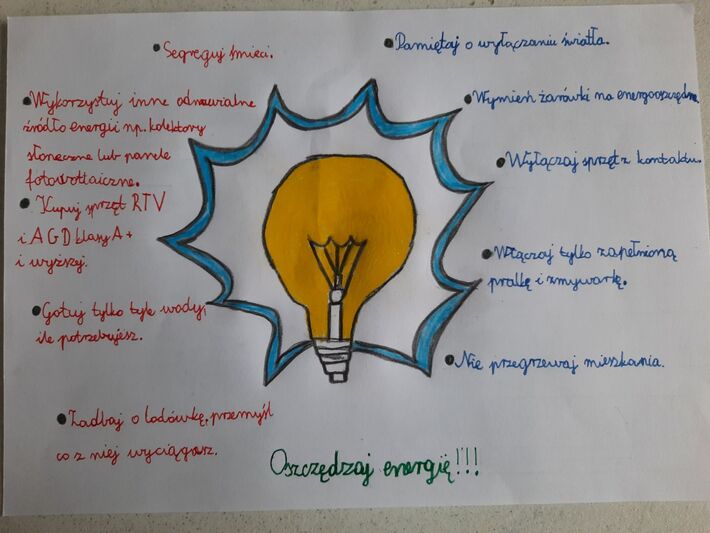 Segreguj śmieci.
Wykorzystuj inne odnawialne
źródło energii np. kolektory
słoneczne lub panele
fotowoltaiczne.
Kupuj sprzęt RTV
i AGD klasy A+
i wyższej.
Gotuj tylko tyle wody,
ile potrzebujesz.
Zadbaj o lodówkę, przemyśl
co z niej wyciągasz.
Pamiętaj o wyłączaniu światła.
Wymień żarówki na energooszczędne.
Wyłączaj sprzęt z kontaktu.
Włączaj tylko zapełnioną
pralkę i zmywarkę.
Nie przegrzewaj mieszkania.
Oszczędzaj energię!!!